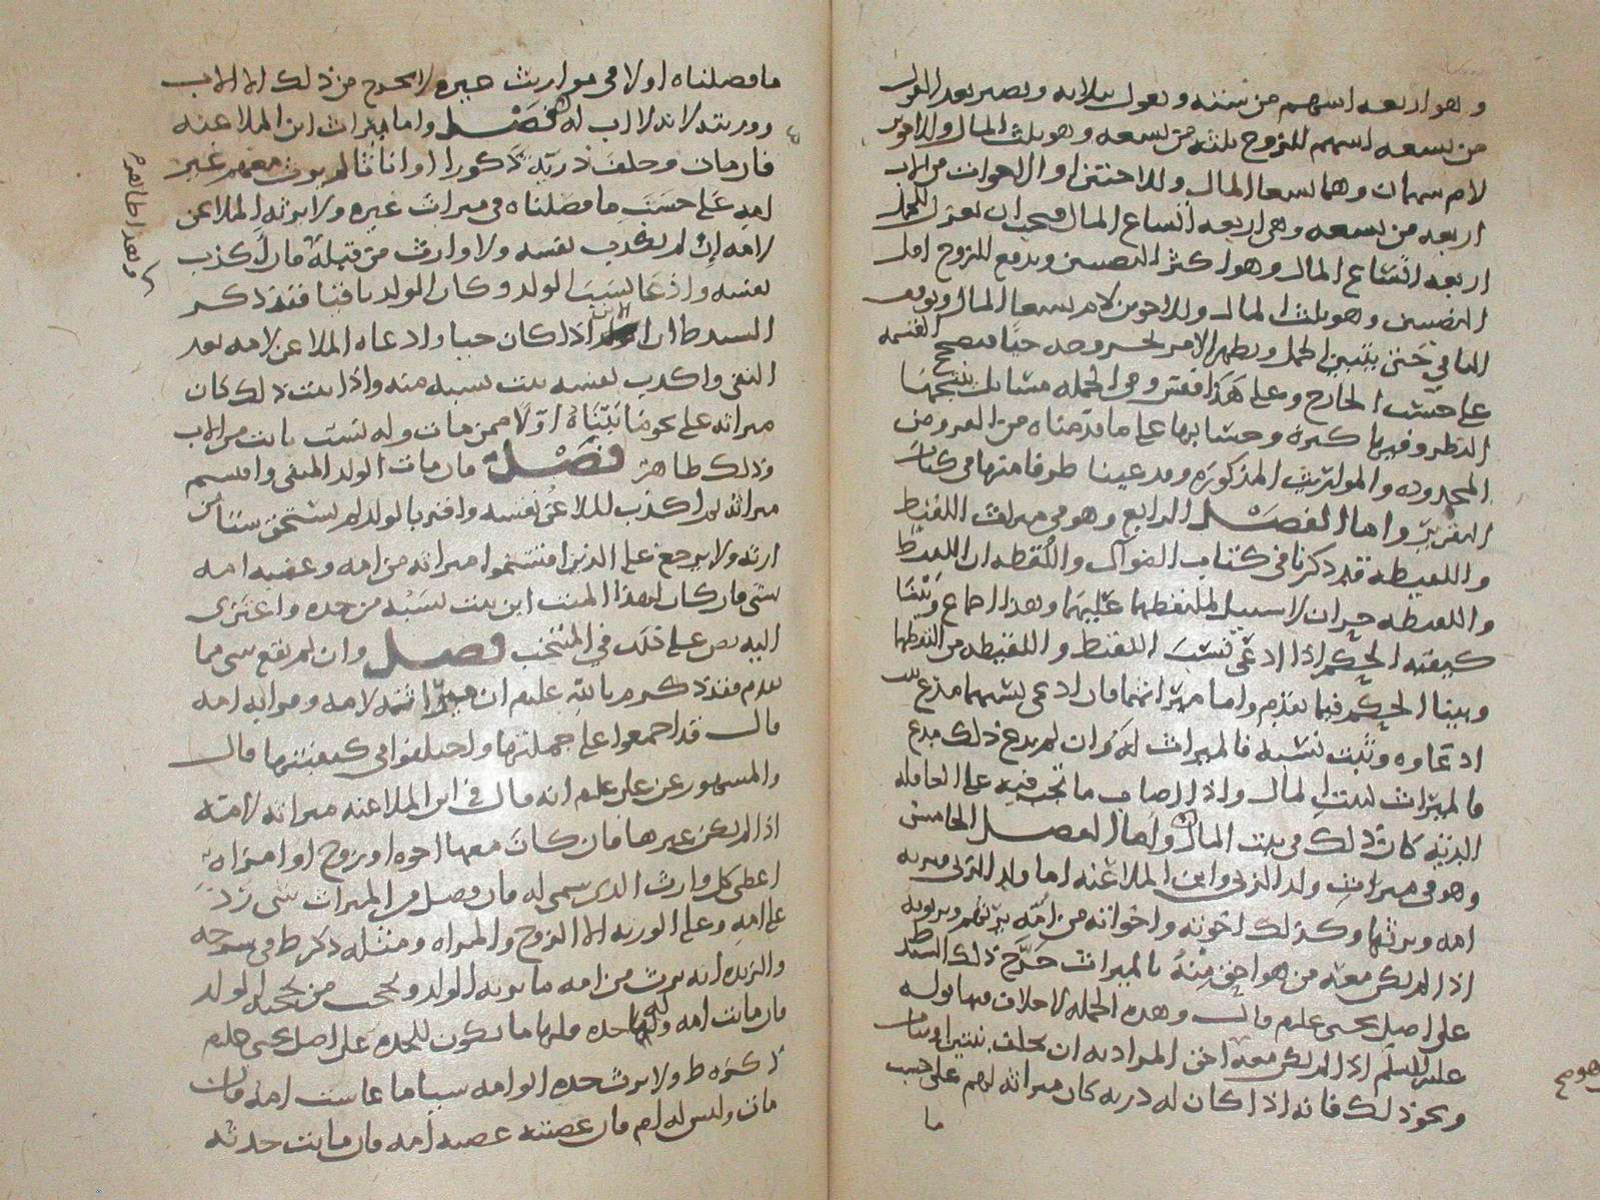 وهو اربعه اسهم من ستة وتعول بثلاثه وتصير بعد العول
من تسعه اسهم للزوج ثلثه من تسعه وهو ثلث المال وللاخوين
لام سهمان وهما تسعا المال وللاختين او الاخوات من الاب
اربعه من تسعه وهي اربعه اتساع المال فيجب ان نعزل للحمل
اربعه اتساع المال وهو اكثر النصيبين ويدفع للزوج اقل
النصيبين وهو ثلث المال وللاخوين لام تسعا المال ويوقف
الباقي حتى يتبين الحمل ويظهر الامر بخروجه حيا فيصح القسمه
على حسب الخارج وعلى هذا فقس وفي الجمله مسايل ينتجها
النظر وفيها كثرة وحسابها على ما قدمناه من الفروض
المحدوده والمواريث المذكوره وقد عينا طرفا منها في كتاب
التقرير واما الفصل الرابع وهو في ميراث اللقيط
واللقيطه فقد ذكرنا في كتاب الضوال واللقطه ان اللقيط
واللقيطه حران لا سبيل لملتقطهما عليهما وهذا اجماع وبينا
كيفية الحكم اذا ادعى نسب اللقيط واللقيطه من التقطها
وبينا الحكم فيما تقدم واما ميراثهما فان ادعى نسبهما مدع
ادعاوه وثبت نسبه فالميراث له وان لم يدع ذلك مدع
فالميراث لبيت المال واذا اصاب ما تجب فيه على العاقله
الديه كان ذلك في بيت المال واما الفصل الخامس
وهو في ميراث ولد الزنى وابن الملاعنه اما ولد الزنى فيرثه
امه ويرثها وكذلك اخوته واخواته من امه يرثهم ويرثونه
اذا لم يكن معه من هو احق منه بالميراث خرج ذلك السيد ط
على اصل يحيى عليلم قال وهذه الجمله لا خلاف فيها قوله
عليه السلم اذا لم يكن معه احق المراد به ان يخلف بنتين او بنات
ونحو ذلك فانه اذا كان له ذريه كان ميراثه لهم على حسب
ما
وهو صح
ما فصلناه اولا في مواريث غيره ولا يخرج من ذلك الا الاب
وورثته لانه لا اب له فصل واما ميراث ابن الملاعنه
فان مات وخلف ذرية ذكورا او اناثا لم يرث معهم غير
امه على حسب ما فصلناه في ميراث غيره ولا يرثه الملاعن
لامه ان لم يكذب نفسه ولا وارث من قبله فان اكذب
نفسه وادعا نسب الولد وكان الولد باقيا فقد ذكر
السيد ط ان الابن اذا كان حيا وادعاه الملاعن لامه بعد
النفي واكذب نفسه ثبت نسبه منه واذا ثبت ذلك كان
ميراثه على نحو ما بيناه اولا فيمن مات وله نسب ثابت من الاب
وذلك ظاهر فصل فان مات الولد المنفي واقتسم
ميراثه ثم اكذب الملاعن نفسه واقر بالولد لم يستحق شيا من
ارثه ولا يرجع على الذين اقتسموا ميراثه من امه وعصبه امه
بشي فان كان لهذا الميت ابن ثبت نسبه من جده واعتزى
اليه نص على ذلك في المنتخب فصل وان لم يقع شي مما
تقدم فقد ذكروه بالله عليلم ان ميراثه لامه وقرابه امه
قال قد اجمعوا على جملتها واختلفوا في كيفيتها قال
والمشهور عن علي عليلم انه قال في ابن الملاعنه ميراثه لامته
اذا لم يكن غيرها فان كان معها اخوه او زوج او امراه
اعطي كل وارث الذي سمي له فان فضل من الميراث شي رد
على امه وعلى الورثه الا الزوج والمراه ومثله ذكر ط في شرحه
والزبده انه يرث من امه ما يرثه الولد ويحجب من يحجبه الولد
فان ماتت امه ولها جده فلها ما يكون للجده على اصل يحيى عليلم
ذكره ط ولا يرث جده ابو امه شيا ما عاشت امه فان
مات وليس له ام فان عصبته عصبه امه فان ماتت جدته
وهذا ظاهر